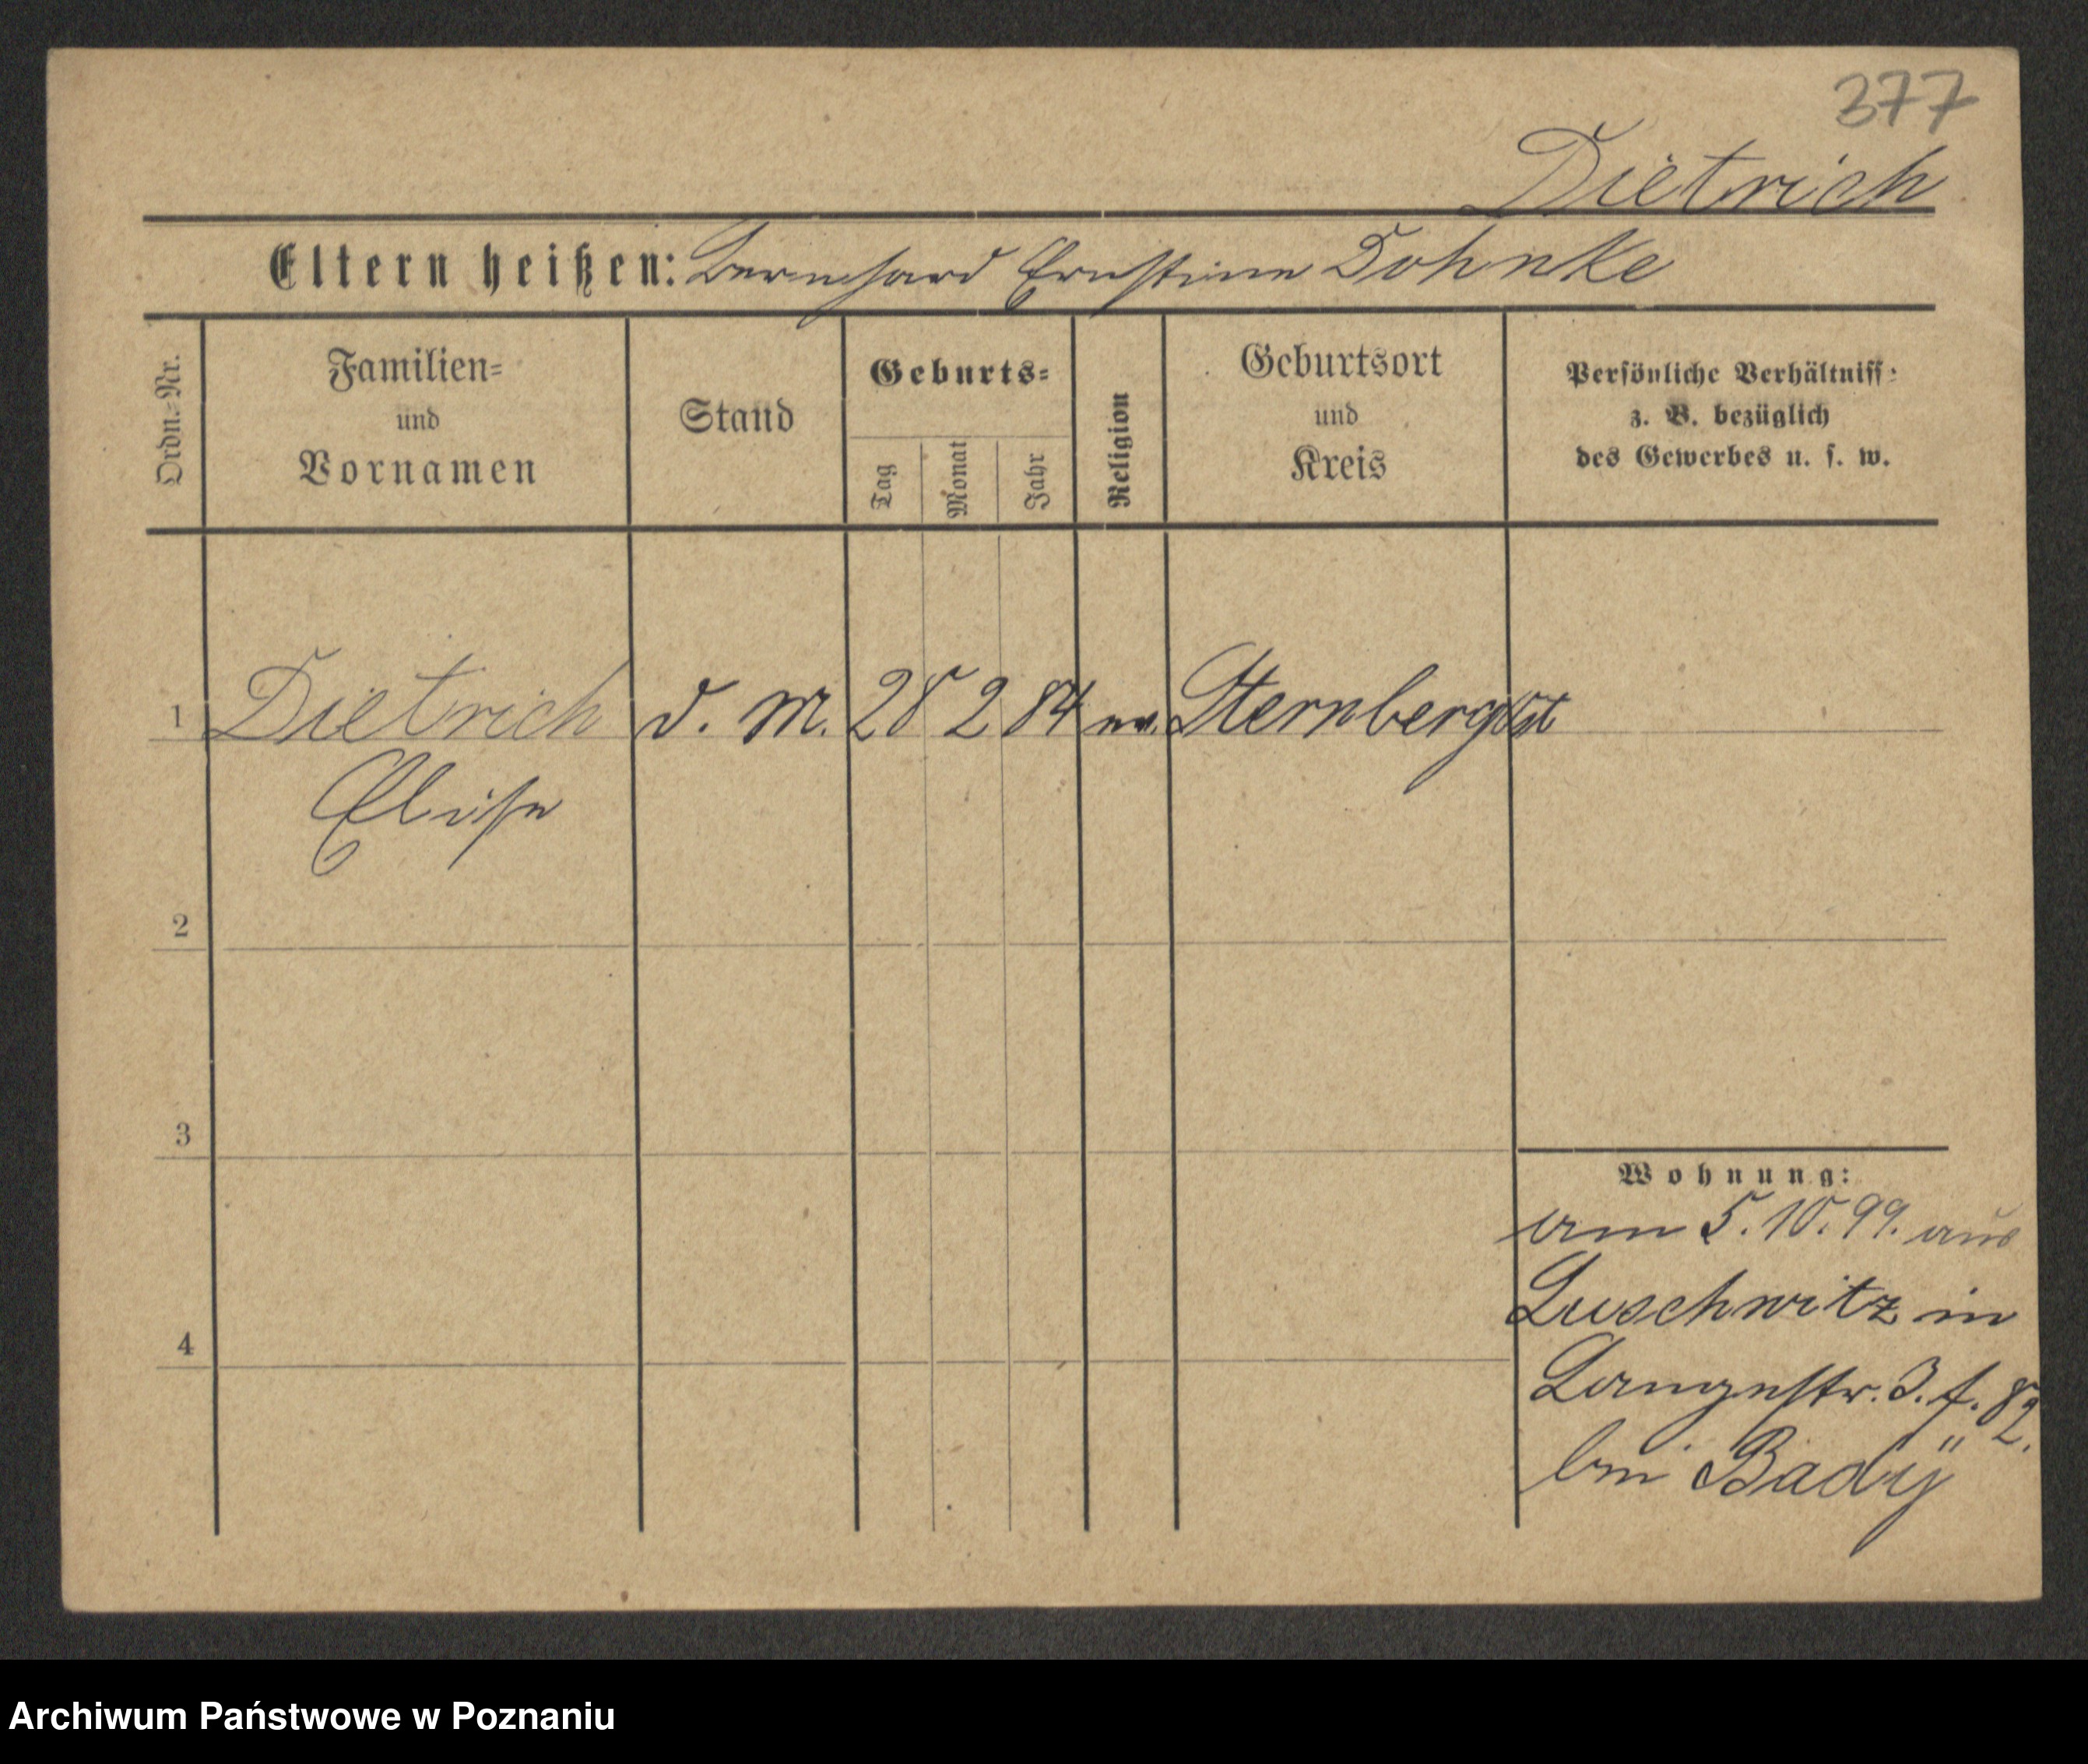 377
Dietrich
Eltern heißen: Bernhard Ernstine Dohnke
Ordn.-Nr.
Familien-
und
Vornamen
Stand
Geburts-
Tag
Monat
Jahr
Religion
Geburtsort
und
Kreis
Persönliche Verhältniss-
z. B. bezüglich
des Gewerbes u. s. w.
1 Dietrich d. M. 28 2 84 ev. Sternberg
Elise
2
3
4
Wohnung:
am 5.10.99. aus
Luschwitz in
Langestr. 3. f. 82.
bei Bady
Archiwum Państwowe w Poznaniu